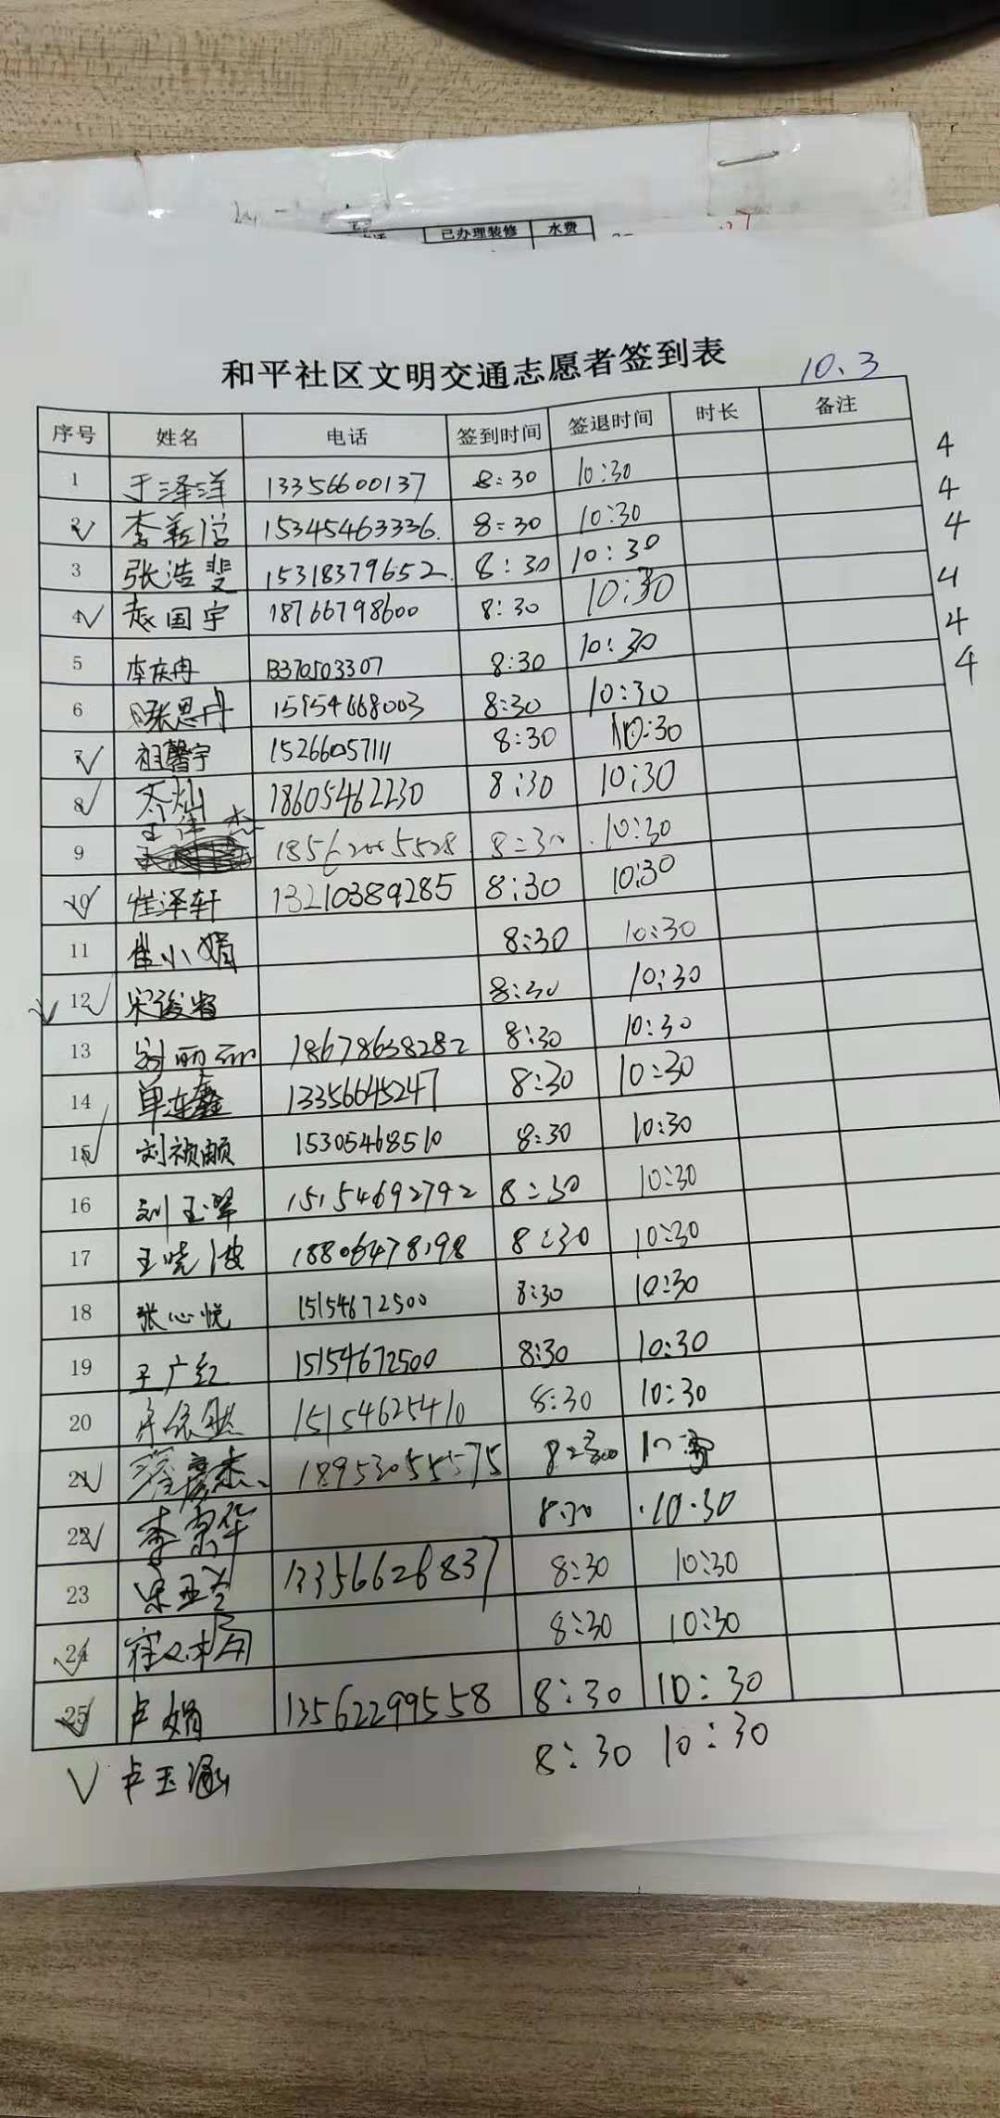 已办理装修 水费
和平社区文明交通志愿者签到表 10、3
序号 姓名 电话 签到时间 签退时间 时长 备注
1 于泽洋 13356600137 8:30 10:30 4
2 李 15345463336 8:30 10:30 4
3 张浩斐 15318379652 8:30 10:30 4
4 赵国宇 18766798600 8:30 10:30 4
5 李庆冉 13370503307 8:30 10:30 4
6 张思丹 15954668003 8:30 10:30 4
7 祖馨宇 15266057111 8:30 10:30
8 灿 18605462230 8:30 10:30
9 王 杰 8:30 10:30
10 崔泽轩 13210389285 8:30 10:30
11 崔小娟 8:30 10:30
12 宋 8:30 10:30
13 丽丽 18678638282 8:30 10:30
14 单连鑫 13356645247 8:30 10:30
15 刘祯颐 15305468510 8:30 10:30
16 刘玉翠 15154692792 8:30 10:30
17 王晓波 18806478198 8:30 10:30
18 张心悦 15154672500 8:30 10:30
19 王广红 15154672500 8:30 10:30
20 依然 15154625410 8:30 10:30
21 彦杰 18953055575 8:30
22 李 华 8:30 10:30
23 宋 13356626837 8:30 10:30
24 崔 8:30 10:30
25 卢娟 13562299558 8:30 10:30
卢玉涵 8:30 10:30